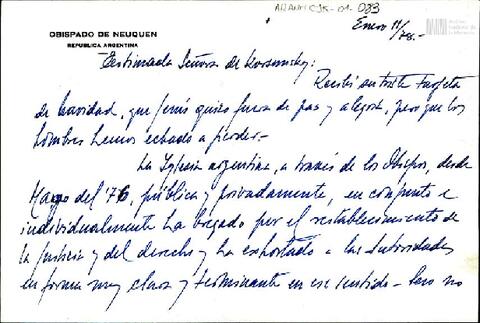 AHANM CJK-01-083
OBISPADO DE NEUQUEN
REPUBLICA ARGENTINA
Enero 11/78.-
Estimada Señora de Korsunsky:
Recibí su triste tarjeta
de Navidad, que Jesús quiso fuera de paz y alegría, pero que los
hombres hemos echado a perder.-
La Iglesia argentina, a través de los Obispos, desde
Mayo del '76, pública y privadamente, en conjunto e
individualmente ha bregado por el restablecimiento de
la justicia y del derecho y ha exhortado a las autoridades
en forma muy clara y terminante en ese sentido - Pero no